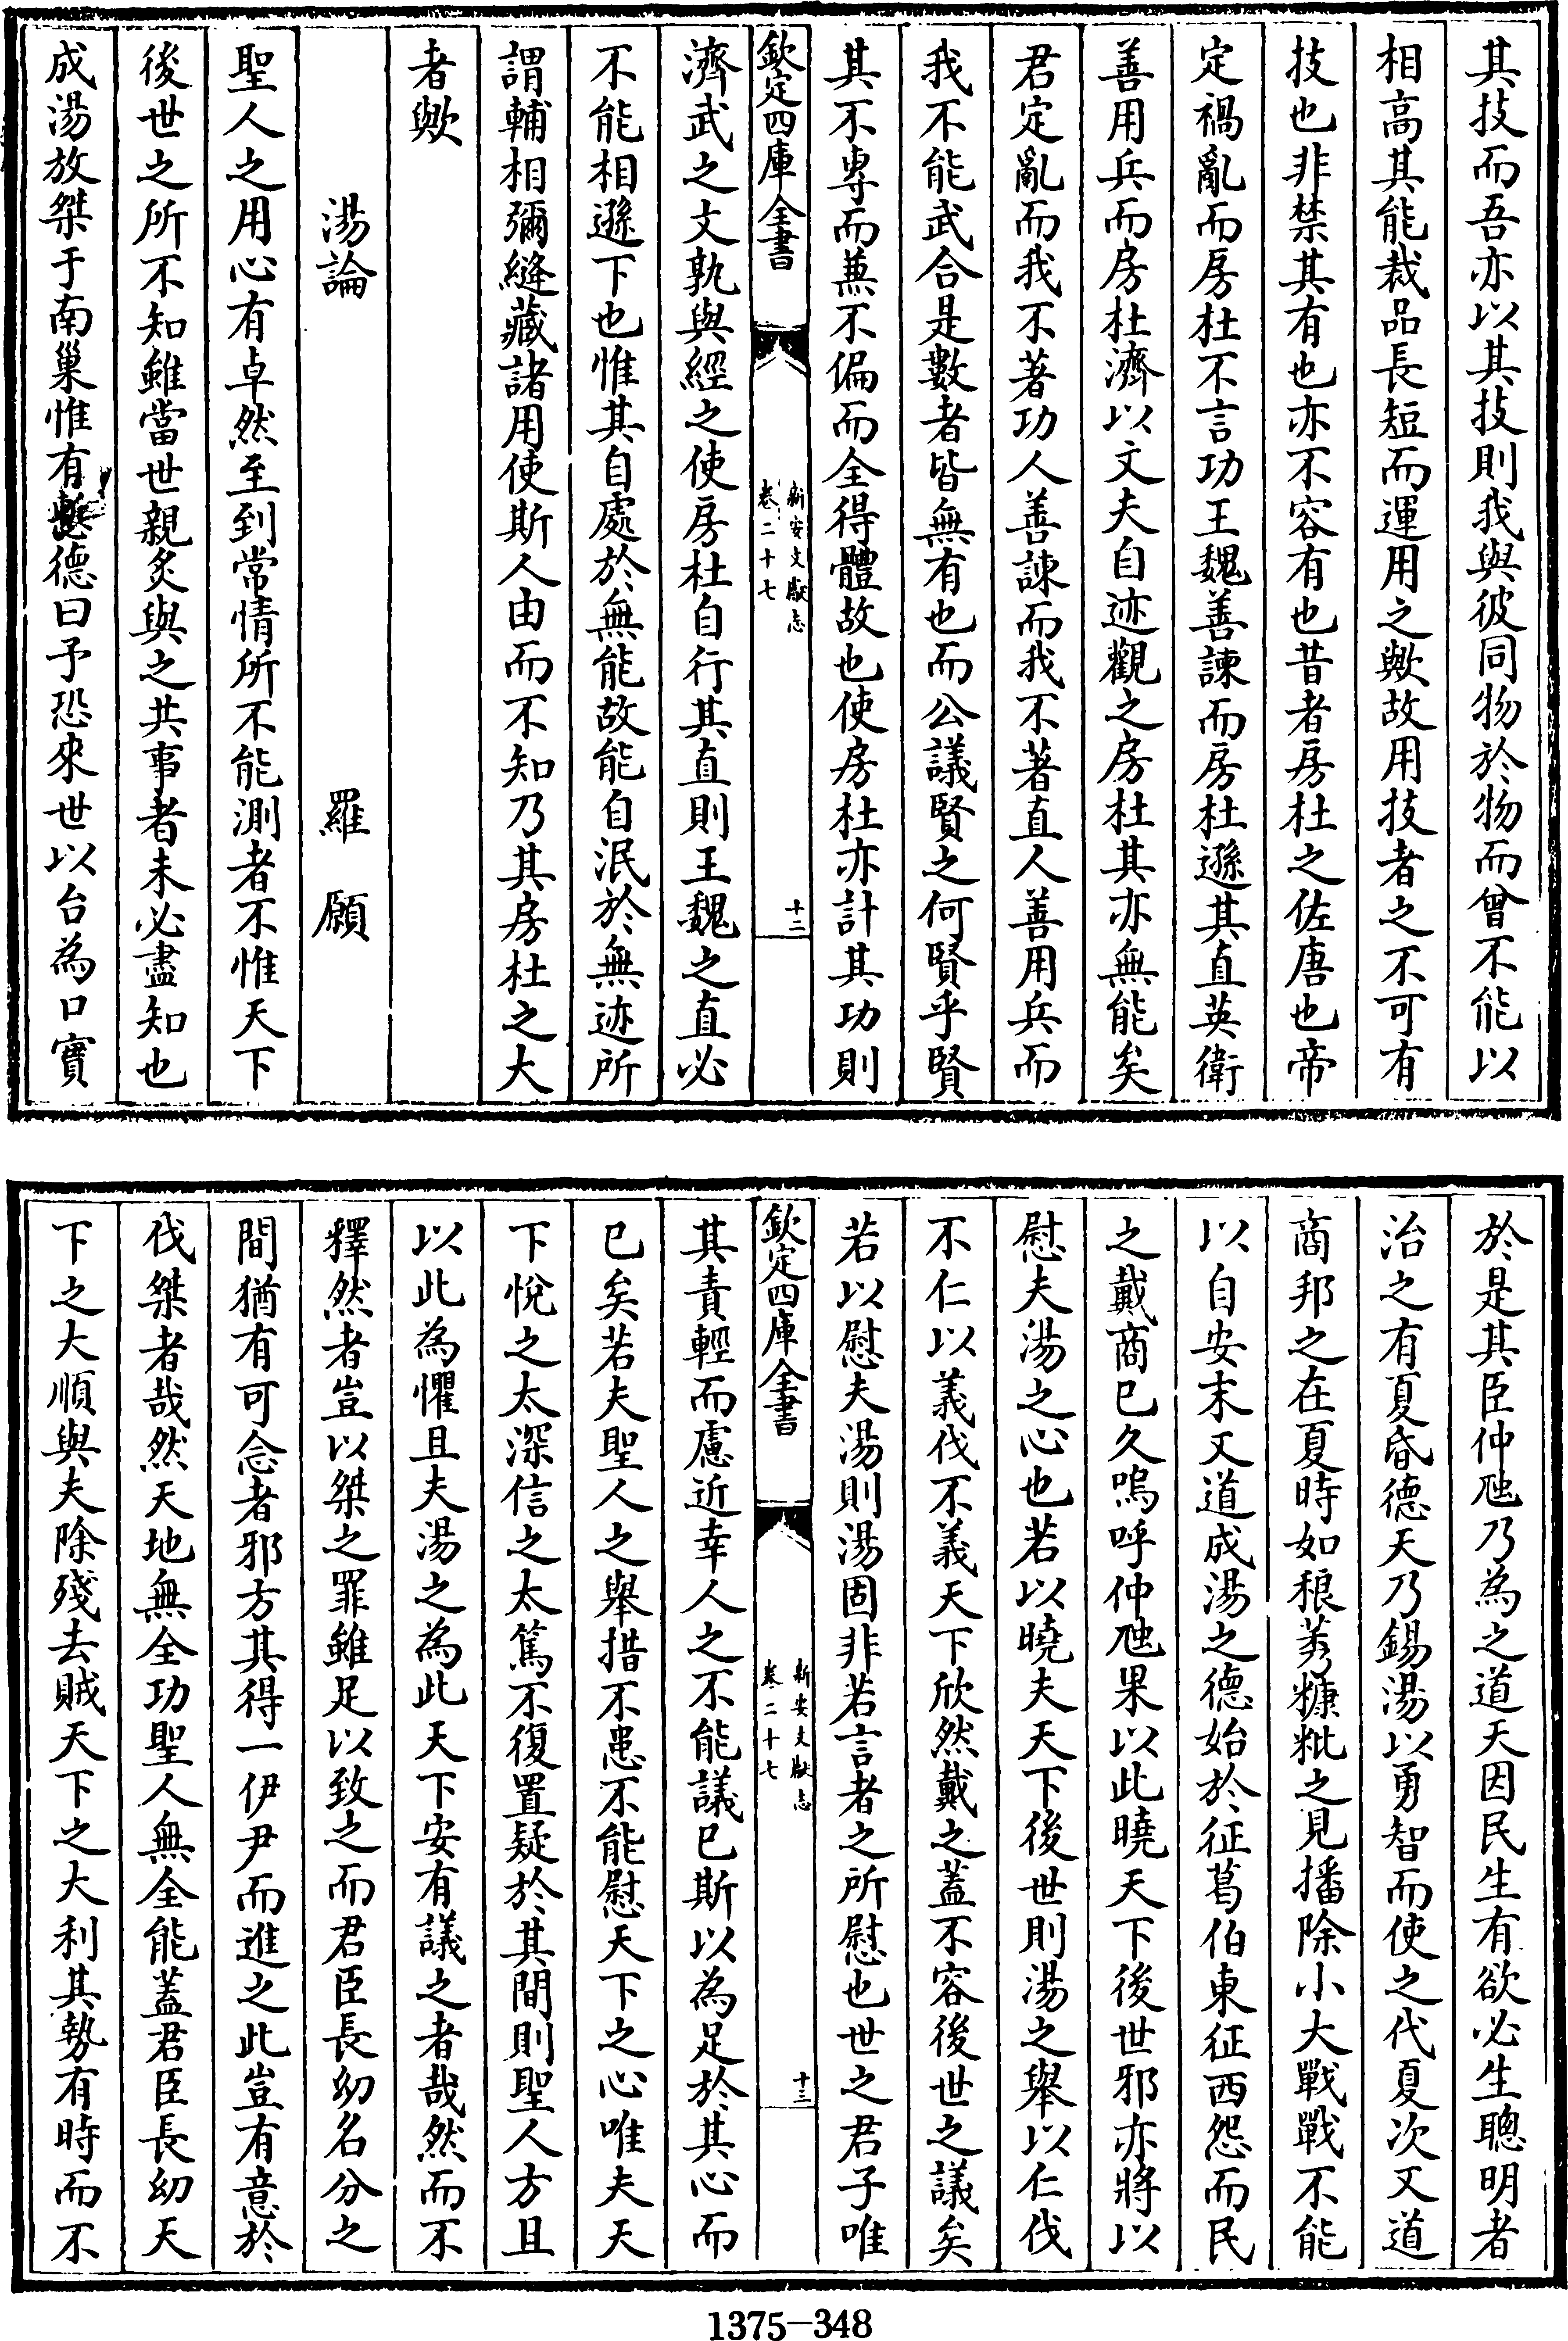 其技而吾亦以其技則我與彼同物於物而曾不能以
相高其能裁品長短而運用之歟故用技者之不可有
技也非禁其有也亦不容有也昔者房杜之佐唐也帝
定禍亂而房杜不言功王魏善諫而房杜遜其直英衛
善用兵而房杜濟以文夫自迹觀之房杜其亦無能矣
君定亂而我不著功人善諫而我不著直人善用兵而
我不能武合是數者皆無有也而公議賢之何賢乎賢
其不專而兼不偏而全得體故也使房杜亦計其功則
欽定四庫全書
新安文獻志
卷二十七
十二
濟武之文孰與經之使房杜自行其直則王魏之直必
不能相遜下也惟其自處於無能故能自泯於無迹所
謂輔相彌縫藏諸用使斯人由而不知乃其房杜之大
者歟
湯論 羅願
聖人之用心有卓然至到常情所不能測者不惟天下
後世之所不知雖當世親炙與之共事者未必盡知也
成湯放桀于南巢惟有慙德曰予恐來世以台為口實
於是其臣仲虺乃為之道天因民生有欲必生聰明者
治之有夏昏德天乃錫湯以勇智而使之代夏次又道
商邦之在夏時如稂莠糠粃之見播除小大戰戰不能
以自安末又道成湯之德始於征葛伯東征西怨而民
之戴商已久嗚呼仲虺果以此曉天下後世邪亦將以
慰夫湯之心也若以曉夫天下後世則湯之舉以仁伐
不仁以義伐不義天下欣然戴之蓋不容後世之議矣
若以慰夫湯則湯固非若言者之所慰也世之君子唯
欽定四庫全書
新安文獻志
卷二十七
十三
其責輕而慮近幸人之不能議已斯以為足於其心而
已矣若夫聖人之舉措不患不能慰天下之心唯夫天
下悅之太深信之太篤不復置疑於其間則聖人方且
以此為懼且夫湯之為此天下安有議之者哉然而不
釋然者豈以桀之罪雖足以致之而君臣長幼名分之
間猶有可念者邪方其得一伊尹而進之此豈有意於
伐桀者哉然天地無全功聖人無全能蓋君臣長幼天
下之大順與夫除殘去賊天下之大利其勢有時而不
1375—348